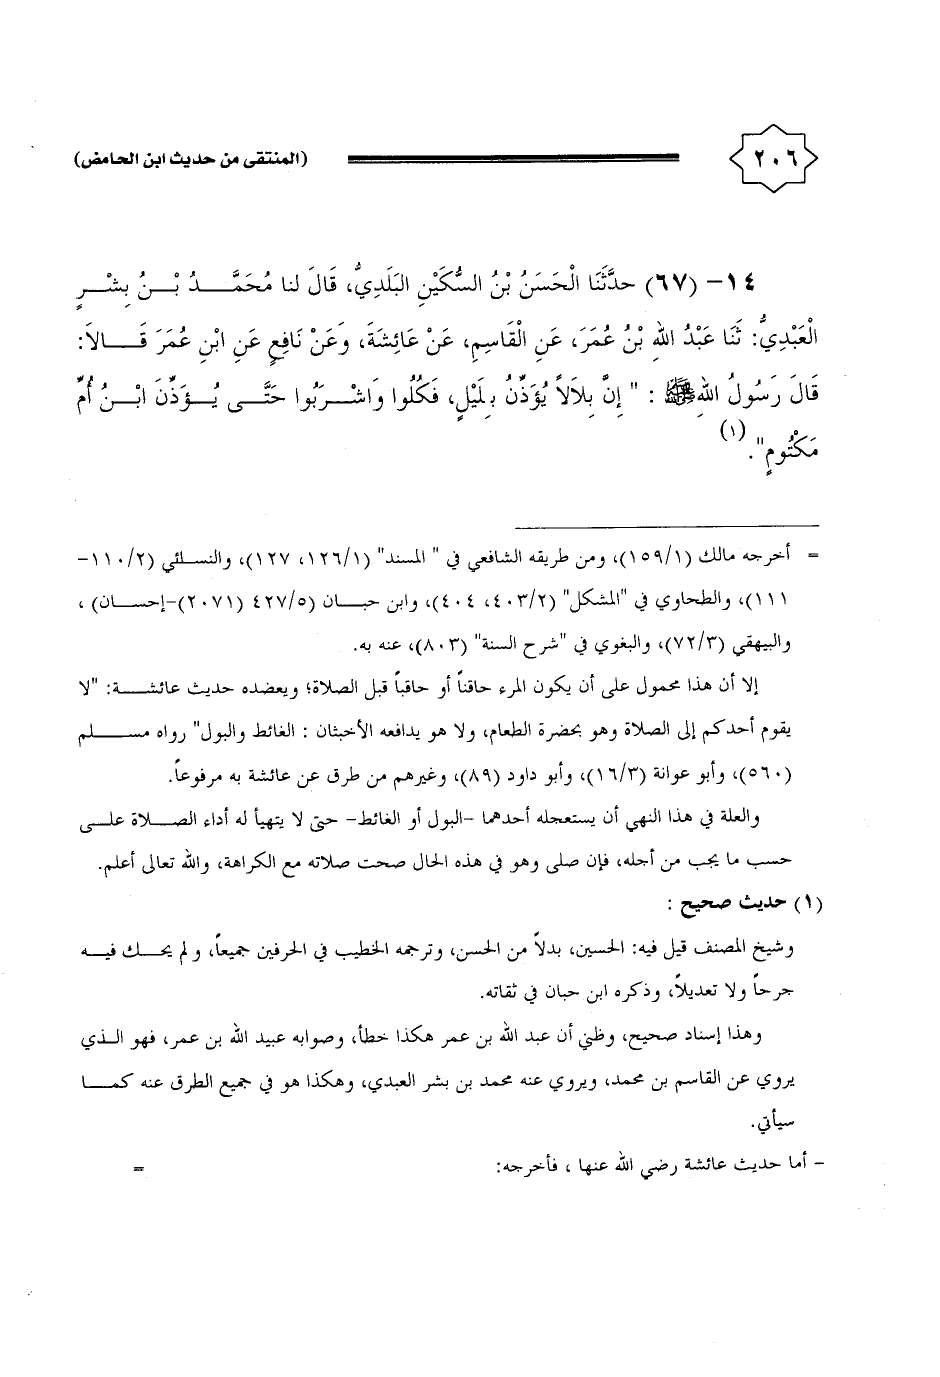 ٢٠٦ (المنتقى من حديث ابن الحامض)
١٤- (٦٧) حدَّثَنَا الْحَسَنُ بْنُ السُّكَيْنِ البَلَدِيُّ، قَالَ لنا مُحَمَّدُ بْنُ بِشْرٍ
الْعَبْدِيُّ: ثَنَا عَبْدُ اللهِ بْنُ عُمَرَ، عَنِ الْقَاسِمِ، عَنْ عَائِشَةَ، وَعَنْ نَافِعٍ عَنِ ابْنِ عُمَرَ قَالاَ:
قَالَ رَسُولُ اللهِ ﷺ : " إِنَّ بِلاَلاً يُؤَذِّنُ بِلَيْلٍ، فَكُلُوا وَاشْرَبُوا حَتَّى يُؤَذِّنَ ابْنُ أُمِّ
مَكْتُومٍ".(١)
= أخرجه مالك (١٥٩/١)، ومن طريقه الشافعي في " المسند" (١٢٦/١، ١٢٧)، والنسائي (١١٠/٢-
١١١)، والطحاوي في "المشكل" (٤٠٣/٢، ٤٠٤)، وابن حبان (٤٢٧/٥ (٢٠٧١)-إحسان) ،
والبيهقي (٧٢/٣)، والبغوي في "شرح السنة" (٨٠٣)، عنه به.
إلا أن هذا محمول على أن يكون المرء حاقناً أو حاقباً قبل الصلاة؛ ويعضده حديث عائشة: "لا
يقوم أحدكم إلى الصلاة وهو بحضرة الطعام، ولا هو يدافعه الأخبثان : الغائط والبول" رواه مسلم
(٥٦٠)، وأبو عوانة (١٦/٣)، وأبو داود (٨٩)، وغيرهم من طرق عن عائشة به مرفوعاً.
والعلة في هذا النهي أن يستعجله أحدهما -البول أو الغائط- حتى لا يتهيأ له أداء الصلاة على
حسب ما يجب من أجله، فإن صلى وهو في هذه الحال صحت صلاته مع الكراهة، والله تعالى أعلم.
(١) حديث صحيح :
وشيخ المصنف قيل فيه: الحسين، بدلاً من الحسن، وترجمه الخطيب في الحرفين جميعاً، ولم يحك فيه
جرحاً ولا تعديلاً، وذكره ابن حبان في ثقاته.
وهذا إسناد صحيح، وظني أن عبد الله بن عمر هكذا خطأ، وصوابه عبيد الله بن عمر، فهو الذي
يروي عن القاسم بن محمد، ويروي عنه محمد بن بشر العبدي، وهكذا هو في جميع الطرق عنه كما
سيأتي.
- أما حديث عائشة رضي الله عنها ، فأخرجه: =